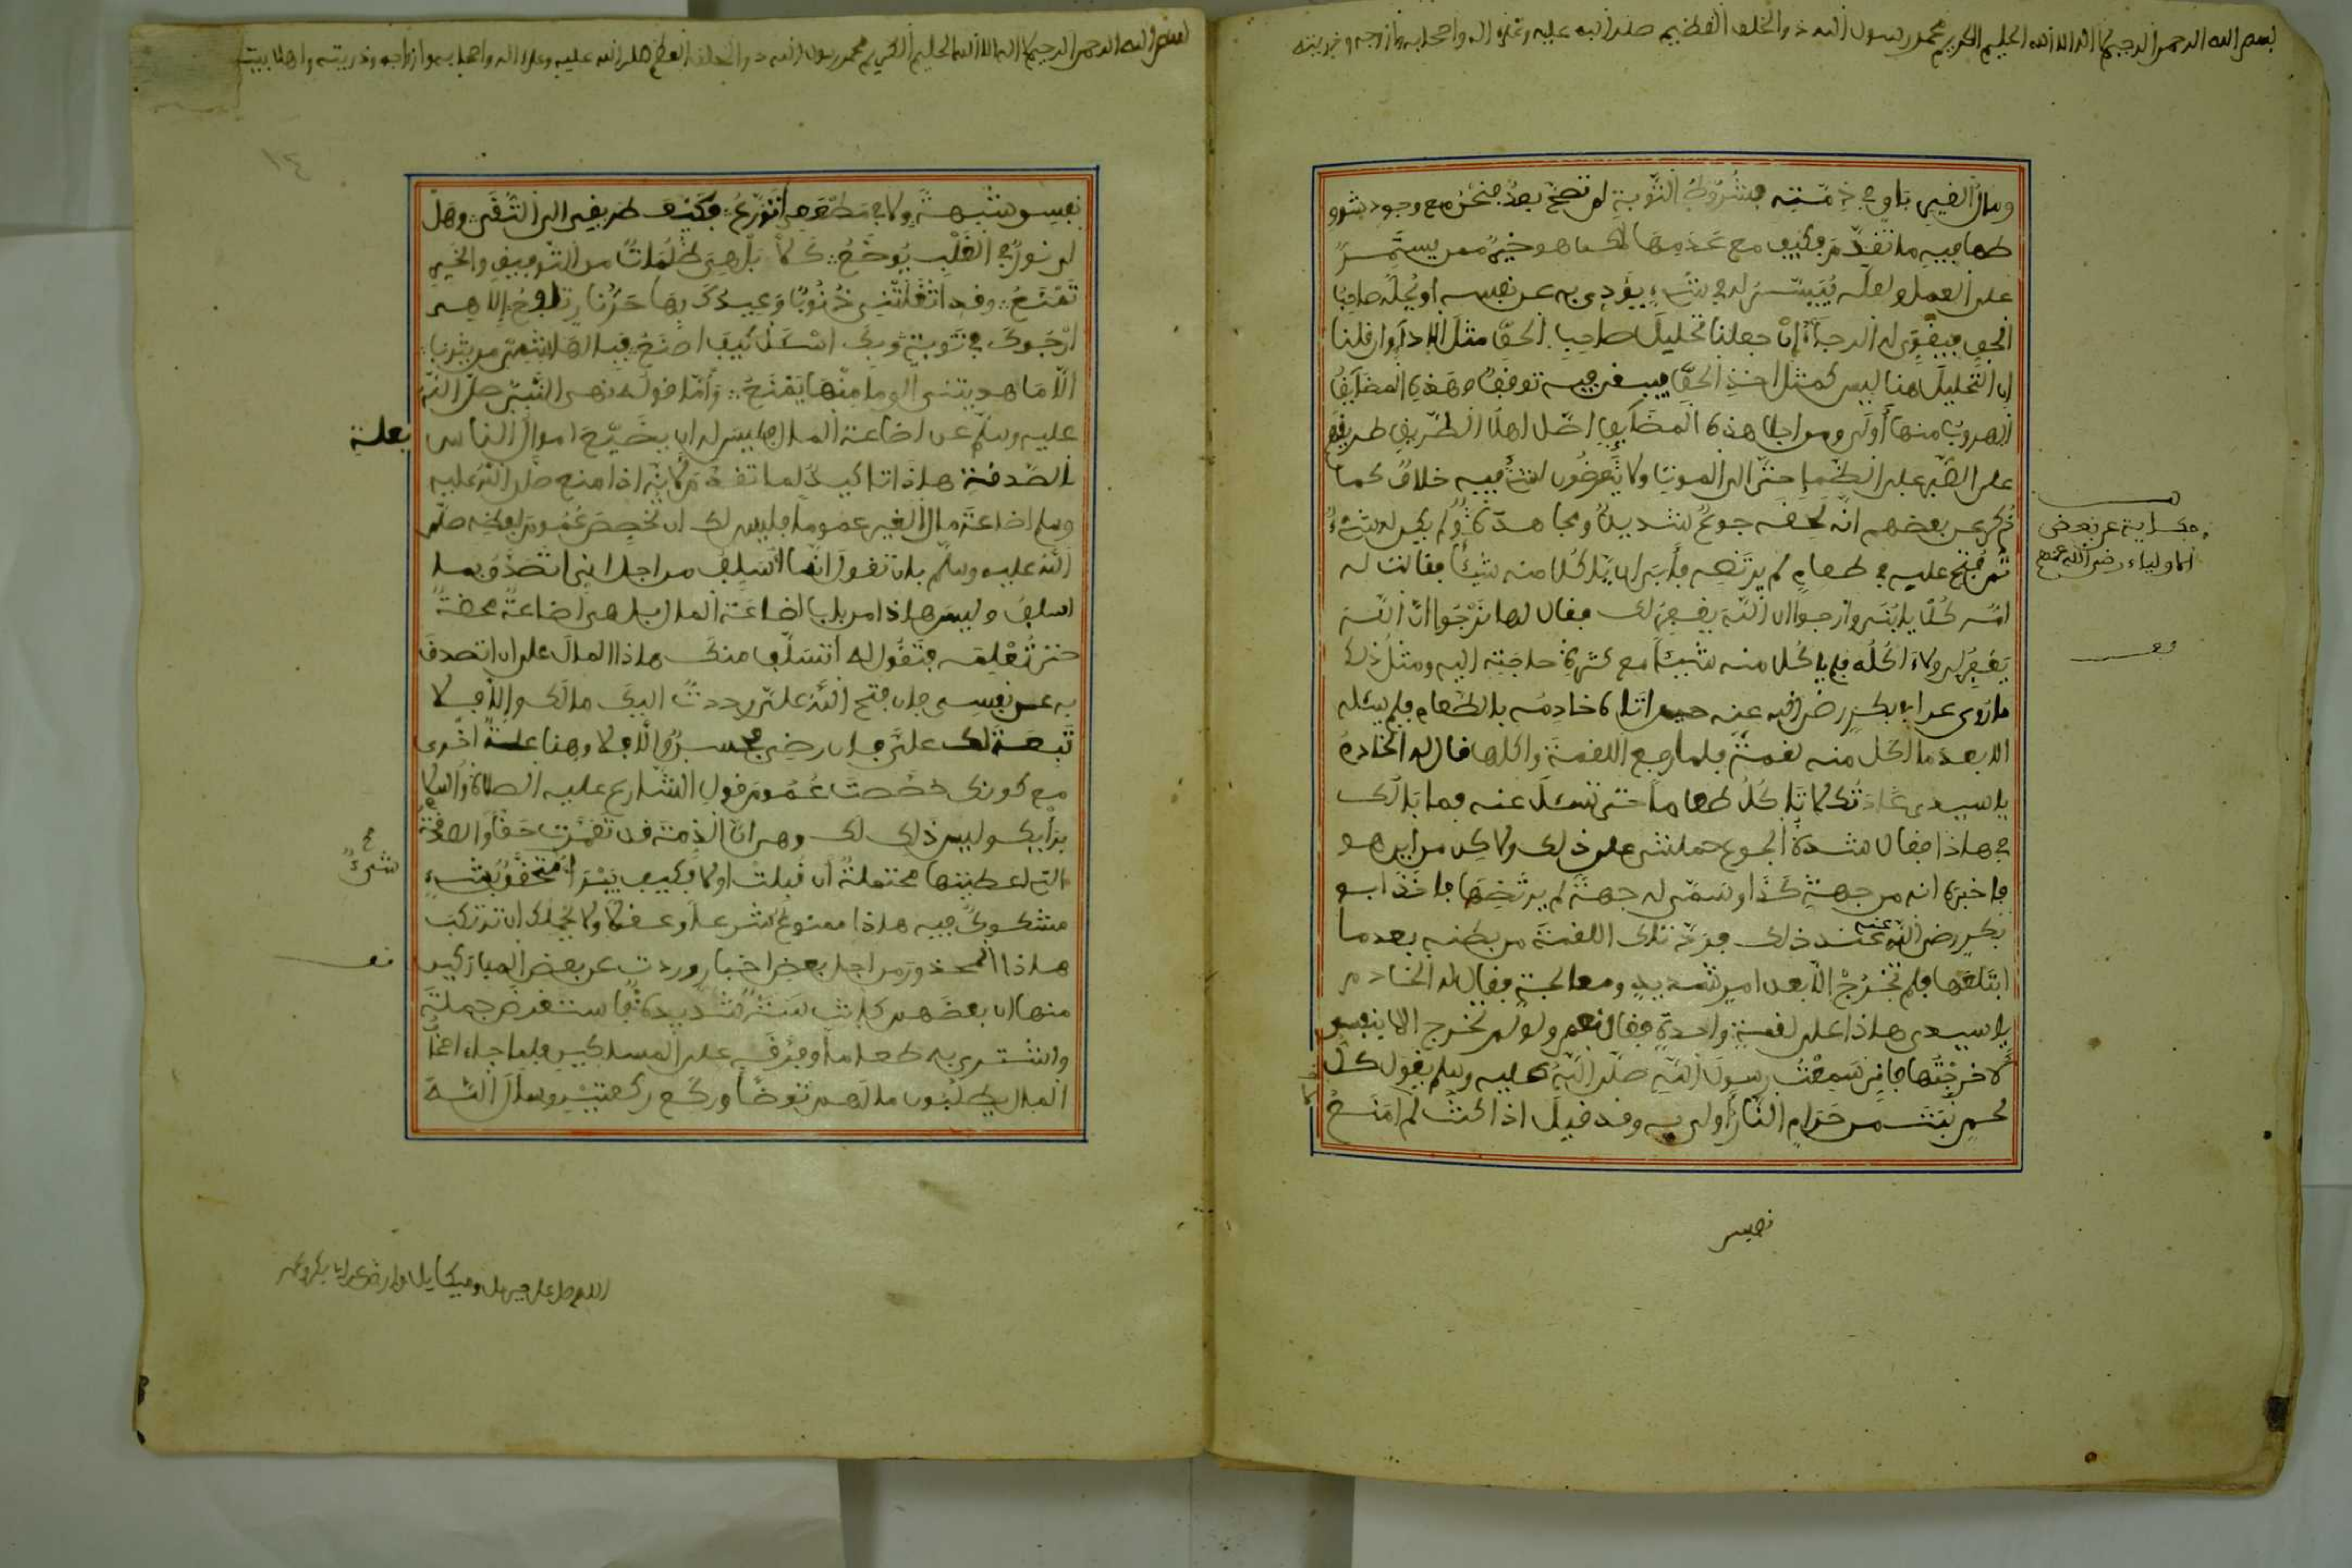 بسم الله الرحمن الرحيم لا اله الا الله الحليم الكريم محمد رسول الله ذو الخلق العظيم صلى الله عليه وعلى اله واصحابه وازوجه وذريته
ومال الغير باق في ذمته بشروط التوبة لم تصح بعد فنحن مع وجود شرو
طها فيه ما تقدم فكيف مع عدمها لاكنها هو خير ممن يستمر
على العمل ولعله يتيسر له في شيء يؤدي به عن نفسه او يحلّه صاحبُ
الحق فيقوى له الرجاء إن جعلنا تحليل صاحب الحقّ مثل الاداء وان قلنا
ان التحليل هنا ليس كمثل اخذ الحقّ فيبقى فيه توقف وهذه المضايق
الهروب منها أولى ومن اجل هذه المضايق اصّل اهل الطريق طريقهم
على الصبر على الظمإ حتى الى الموت ولا يتعرضون لشيء فيه خلاف كما
ذُكر عن بعضهم انّه لحقه جوع شديد ومجاهدة ولم يكن له شيء
ثم فُتح عليه في طعام لم يرتضه فأبى ان يأكل منه شيئًا فقالت له
امّه كُل يا بني وارجوا ان الله يغفر لك فقال لها نرجوا انّ الله
يغفر لي ولا ءاكله فلم ياكل منه شيئا مع كثرة حاجته اليه ومثل ذلك
ما روي عن ابي بكر رضي الله عنه حين اتاه خادمه بالطعام فلم يسئله
الا بعد ما اكل منه لقمة فلما رفع اللقمة واكلها قال له الخادم
يا سيدي عادتك لا تاكل طعاما حتى تسئل عنه فما بالك
في هاذا فقال شدة الجوع حملتني على ذلك ولاكن من اين هو
فاخبره انه من جهة كذا وسمّى له جهة لم يرتضها فاخذ ابو
بكر رضي الله عنه عند ذلك فردّ تلك اللقمة من بطنه بعد ما
ابتلعها فلم تخرُج الّا بعد امر شديد ومعالجة فقال له الخادم
يا سيدي هاذا على لقمة واحدة فقال نعم ولو لم تخرج الا بنفسي
لاخرجتها فاني سمعت رسول الله صلّى الله عليه وسلم يقول كل
لحم نبت من حرام النار أولى به وقد قيل اذا كنت لم امنع
حكاية عن بعض
الاولياء رضي الله عنهم
قف
نفسي
بسم الله الرحمن الرحيم لا اله الا الله الحليم الكريم محمد رسول الله ذو الخلق العظيم صلى الله عليه وعلى اله واصحابه وازواجه وذريته واهل بيته
١٤
نفسي شبهة ولا في مطعمي اتورّع :: فكيف طريقي الى التقى :: وهل
لي نور في القلب يوضع :: كلا بل هي ظلمات من التوفيق والخير
تمنع :: وقد اثقلتني ذنوب وعيبك بها حزنا الاهي
ارجوك في توبة وبك اسئل كيف اصنع فيالها شيم من ربنا
الّا ما هديتني الى ما منها يمنع :: وأمّا قوله نهى النّبيّ صلّى اللّه
عليه وسلم عن اضاعة المال فليس له ان يضيّع اموال الناس بعلة
الصدقة هاذا تاكيد لما تقدّم لانّه اذا منع صلى الله عليه
وسلم اضاعة مال الغير عموما فليس لك ان تخصص عموم لفظه صلّى
اللّه عليه وسلّم بان تقول انما اتسلف من اجل اني اتصدّق بما
اسلف وليس هاذا من باب اضاعة المال بل هي اضاعة محضة
حتى تُعلِمه فتقول له أتسلف منك هاذا المال على ان اتصدق
به عن نفسي فان فتح اللّه عليّ رددت اليك مالك والا فلا
تبعة لك عليّ فان رضي فحسن والّا فلا وهنا علة اخرى
مع كونك خصصت عموم قول الشارع عليه الصلاة والسلام
برأيك وليس ذلك لك وهي انّ الذمة قد تعمّرت حقا والصدقة
التي اعطيتها محتملة أن قُبلت او لا فكيف تبرأ متحقق بشيء
مشكوك فيه هاذا ممنوع شرعا وعقلا ولا يحملك ان ترتكب
هاذا المحذور من اجل بعض اخبار وردت عن بعض المباركين
منها ان بعضهم كانت سنة شديدة فاستقرض جملة
واشترى به طعاما وفرقه على المساكين فلما جاء اصحاب
المال يطلبون مالهم توضأ وركع ركعتين وسأل اللّه
اللهم صل على جبريل وميكايل وارض عن ابا بكر وعمر